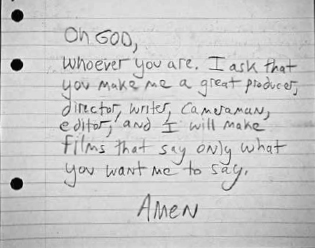 Oh GOD,
Whoever you are. I ask that
you make me a great producer,
director, writer, cameraman,
editor, and I will make
films that say only what
you want me to say.
AMEN